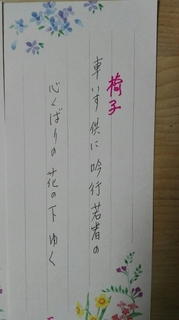 椅子
車いす供に吟行若者の
心くばりの花の下ゆく